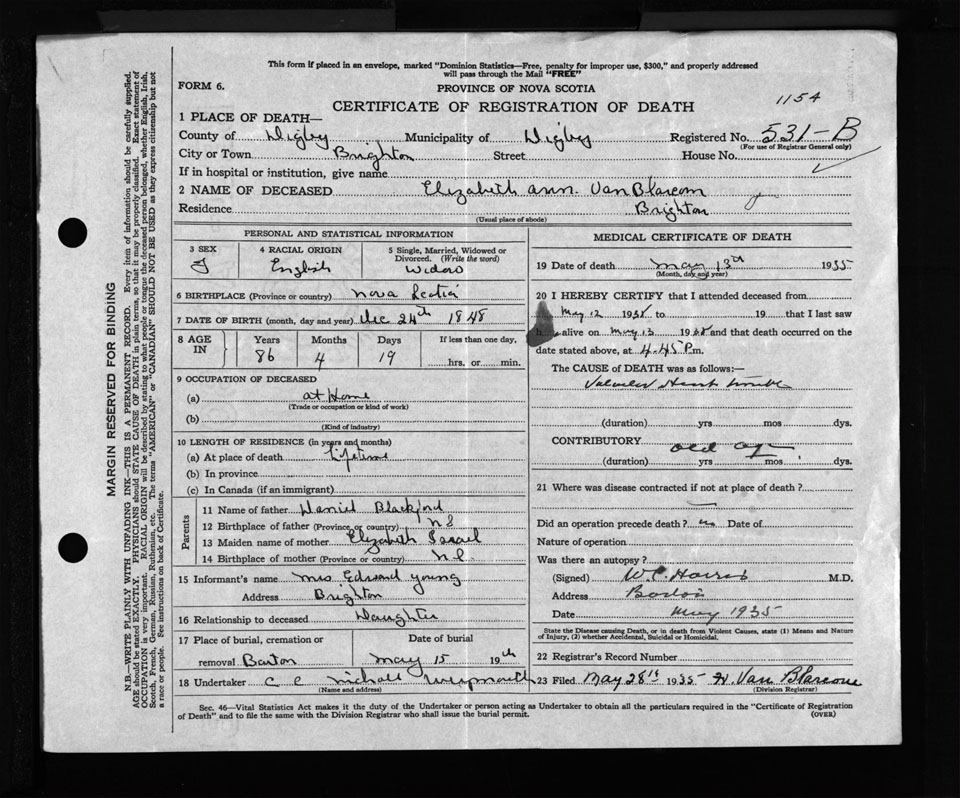 This form if placed in an envelope, marked "Dominion Statistics—Free, penalty for improper use, $300," and properly addressed
will pass through the Mail "FREE"
FORM 6.
PROVINCE OF NOVA SCOTIA
1154
CERTIFICATE OF REGISTRATION OF DEATH
1 PLACE OF DEATH—
County of Digby Municipality of Digby Registered No. 531-B
(For use of Registrar General only)
City or Town Brighton Street House No.
If in hospital or institution, give name
2 NAME OF DECEASED Elizabeth Ann. VanBlarcom
Residence Brighton
(Usual place of abode)
PERSONAL AND STATISTICAL INFORMATION
3 SEX 4 RACIAL ORIGIN 5 Single, Married, Widowed or
Divorced. (Write the word)
F English Widow
6 BIRTHPLACE (Province or country) Nova Scotia
7 DATE OF BIRTH (month, day and year) Dec 24th 1848
8 AGE IN Years Months Days If less than one day,
86 4 19 hrs. or min.
9 OCCUPATION OF DECEASED
(a) at Home
(Trade or occupation or kind of work)
(b)
(Kind of industry)
10 LENGTH OF RESIDENCE (in years and months)
(a) At place of death Lifetime
(b) In province
(c) In Canada (if an immigrant)
Parents
11 Name of father Daniel Blackford
12 Birthplace of father (Province or country) N S
13 Maiden name of mother Elizabeth Israel
14 Birthplace of mother (Province or country) N.S.
15 Informant's name Mrs Edward Young
Address Brighton
16 Relationship to deceased Daughter
17 Place of burial, cremation or Date of burial
removal Barton May 15 19th
18 Undertaker C E Nichols Weymouth
(Name and address)
MEDICAL CERTIFICATE OF DEATH
19 Date of death May 13th 1935
(Month, day and year)
20 I HEREBY CERTIFY that I attended deceased from
May 12 1935 to 19 that I last saw
h alive on May 13 1935 and that death occurred on the
date stated above, at 4.45 P.m.
The CAUSE of DEATH was as follows:—
Valvular Heart trouble
(duration) yrs mos dys.
CONTRIBUTORY old age
(duration) yrs mos dys.
21 Where was disease contracted if not at place of death?
Did an operation precede death? no Date of
Nature of operation
Was there an autopsy?
(Signed) W.C. Harris M.D.
Address Barton
Date May 1935
State the Disease causing Death, or in death from Violent Causes, state (1) Means and Nature
of Injury, (2) whether Accidental, Suicidal or Homicidal.
22 Registrar's Record Number
23 Filed May 28th 1935 H. Van Blarcom
(Division Registrar)
Sec. 46—Vital Statistics Act makes it the duty of the Undertaker or person acting as Undertaker to obtain all the particulars required in the "Certificate of Registration
of Death" and to file the same with the Division Registrar who shall issue the burial permit. (OVER)
MARGIN RESERVED FOR BINDING
N.B.—WRITE PLAINLY WITH UNFADING INK—THIS IS A PERMANENT RECORD. Every item of information should be carefully supplied.
AGE should be stated EXACTLY. PHYSICIANS should STATE CAUSE OF DEATH in plain terms, so that it may be properly classified. Exact statement of
OCCUPATION is very important. RACIAL ORIGIN will be described by stating to what people or tongue the deceased person belonged, whether English, Irish,
Scotch, French, German, Russian, Ruthenian, etc. The terms "AMERICAN" or "CANADIAN" SHOULD NOT BE USED as they express citizenship but not
a race or people. See instructions on back of Certificate.